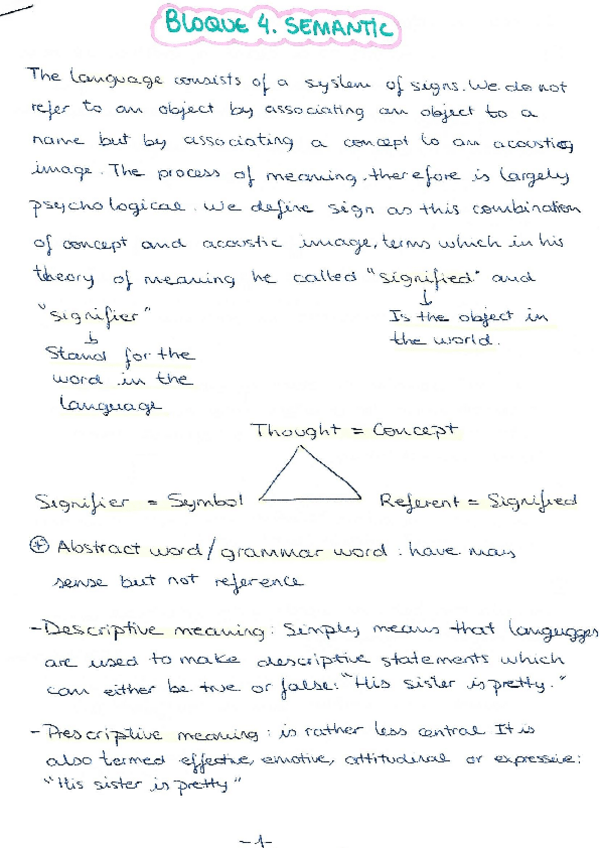 BLOQUE 4. SEMANTIC
The language consists of a system of signs. We do not
refer to an object by associating an object to a
name but by associating a concept to an acoustic
image. The process of meaning, therefore is largely
psychological. We define sign as this combination
of concept and acoustic image, terms which in his
theory of meaning he called "signified" and
"signifier"
Is the object in
the world.
Stand for the
word in the
language
Thought = Concept
Signifier = Symbol
Referent = Signified
+ Abstract word / grammar word : have may
sense but not reference
- Descriptive meaning: Simply means that languages
are used to make descriptive statements which
can either be true or false: "His sister is pretty."
- Prescriptive meaning: is rather less central It is
also termed effective, emotive, attitudinal or expressive:
"His sister is pretty"
-1-